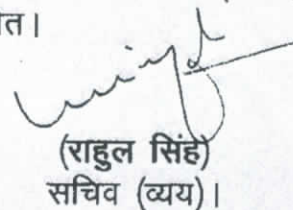 त।
(राहुल सिंह)
सचिव (व्यय)।